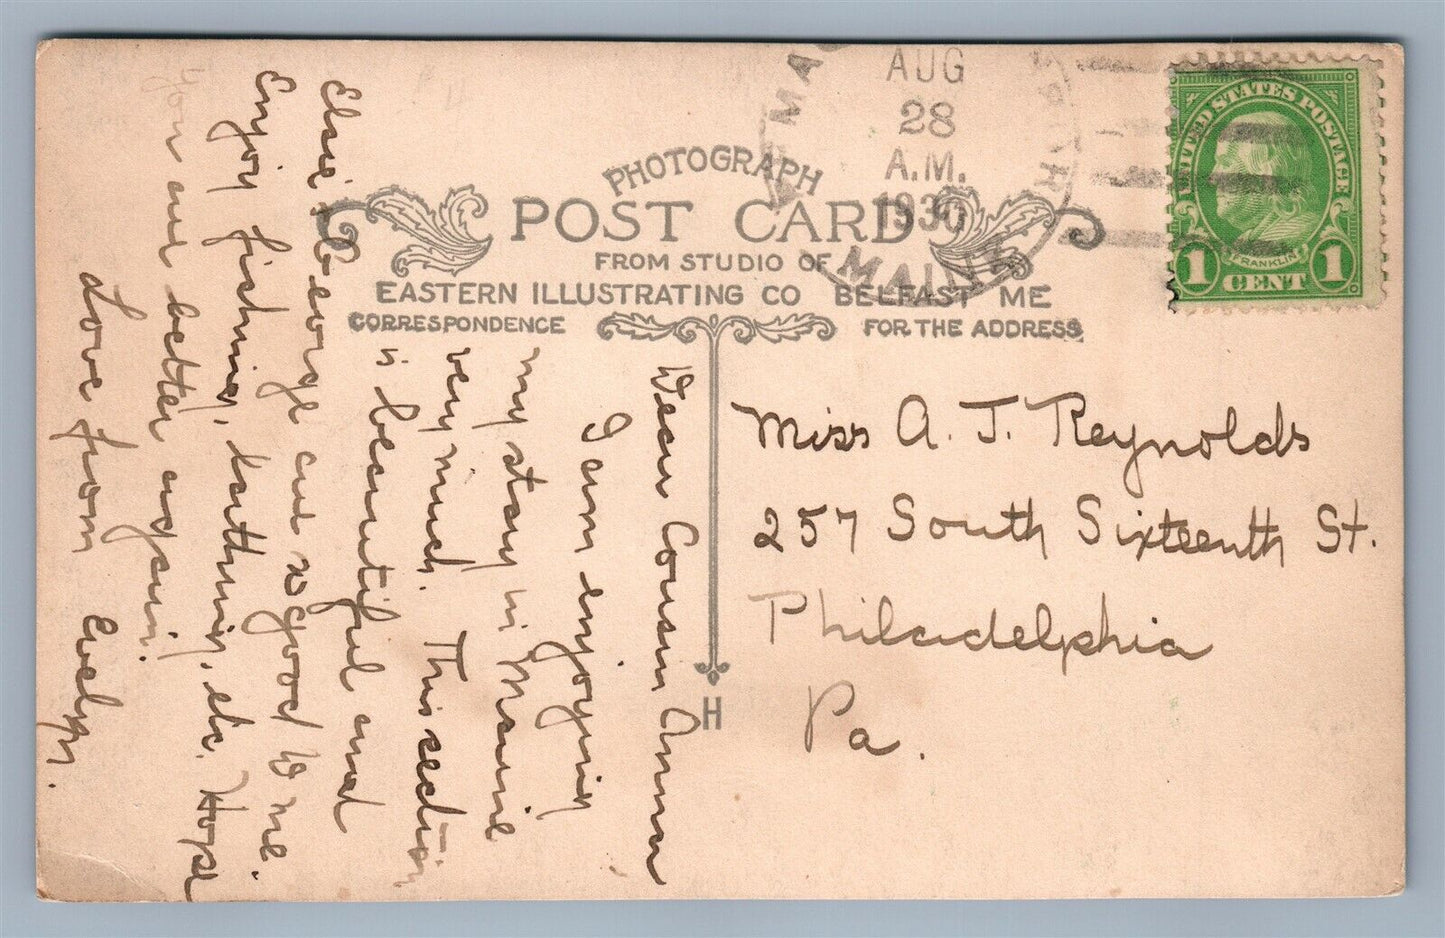 AUG
28
A.M.
1930
MAINE
UNITED STATES POSTAGE
FRANKLIN
1 CENT 1
PHOTOGRAPH
POST CARD
FROM STUDIO OF
EASTERN ILLUSTRATING CO BELFAST ME
CORRESPONDENCE
FOR THE ADDRESS
H
Dear Cousin Anna
I am enjoying
my stay in Maine
very much. This section
is beautiful and
Elsie & George are so good to me.
Enjoy fishing, bathing, etc. Hope
you are better again.
Love from Evelyn.
Miss A. J. Reynolds
257 South Sixteenth St.
Philadelphia
Pa.